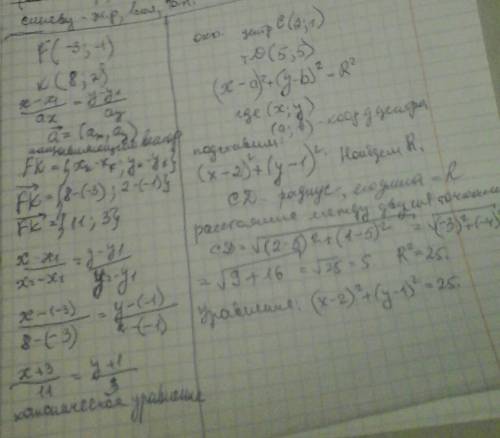 F(-3; -1)
K(8; 2)
x-x₁/aₓ = y-y₁/a_y
a⃗ = (aₓ, a_y)
направляющий вектор
FK = {x₂-x₁; y₂-y₁}
FK⃗ = {8-(-3); 2-(-1)}
FK⃗ = {11; 3}
x-x₁/x₂-x₁ = y-y₁/y₂-y₁
x-(-3)/8-(-3) = y-(-1)/2-(-1)
x+3/11 = y+1/3
каноническое уравнение
окр. центр C(2; 1)
т. D(5; 5)
(x-a)²+(y-b)²=R²
где (x; y)
(a; b) - коорд центра
подставим:
(x-2)²+(y-1)². Найдем R.
CD - радиус, = R
расстояние между двумя точками
CD = √(2-5)²+(1-5)² = √(-3)²+(-4)
= √9+16 = √25 = 5 R²=25.
Уравнение: (x-2)²+(y-1)²=25.